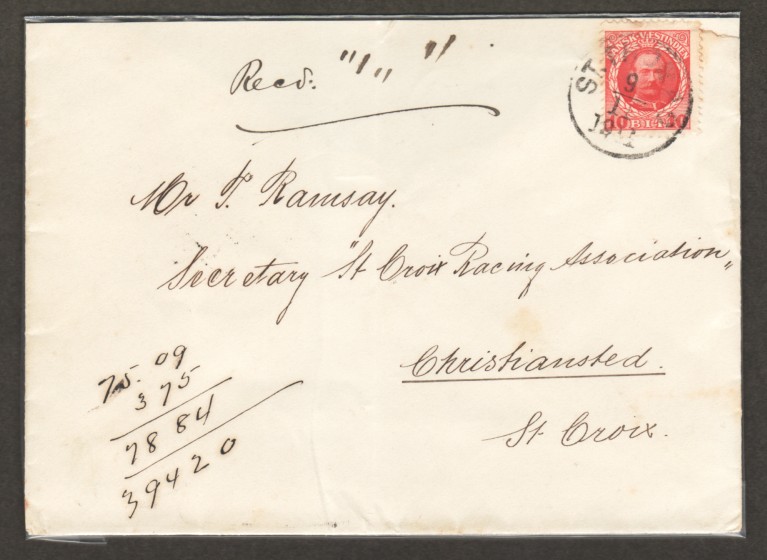 Recd. "1,, "
DANSK VESTINDIEN
10 BIT 10
ST.
9
1
1911
Mr T. Ramsay.
Secretary "St Croix Racing Association„
Christiansted.
St Croix.
75.09
375
78 84
39420